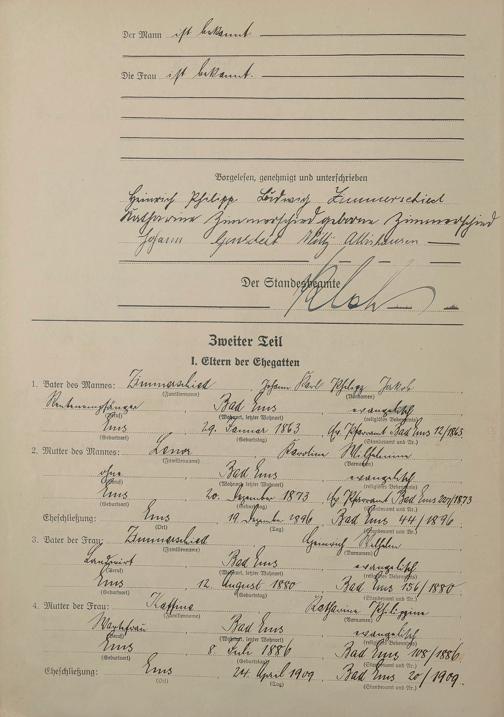 Der Mann ist bekannt.
Die Frau ist bekannt.
Vorgelesen, genehmigt und unterschrieben
Heinrich Philipp Ludwig Zimmerschied
Katharine Zimmerschied geborene Zimmerschied
Johann
Der Standesbeamte
Zweiter Teil
I. Eltern der Ehegatten
1. Vater des Mannes: Zimmerschied Johann Karl Philipp Jakob
(Familienname) (Vornamen)
Rentenempfänger Bad Ems evangelisch
(Beruf) (Wohnort, letzter Wohnort) (religiöses Bekenntnis)
Ems 29. Januar 1863 Ev. Pfarramt Bad Ems 12/1863
(Geburtsort) (Geburtstag) (Standesamt und Nr.)
2. Mutter des Mannes: Karoline Wilhelmine
(Familienname) (Vornamen)
ohne Bad Ems evangelisch
(Beruf) (Wohnort, letzter Wohnort) (religiöses Bekenntnis)
Ems 20. Dezember 1873 Ev. Pfarramt Bad Ems 207/1873
(Geburtsort) (Geburtstag) (Standesamt und Nr.)
Eheschließung: Ems 19. Dezember 1896 Bad Ems 44/1896
(Ort) (Tag) (Standesamt und Nr.)
3. Vater der Frau: Zimmerschied Heinrich Wilhelm
(Familienname) (Vornamen)
Landwirt Bad Ems evangelisch
(Beruf) (Wohnort, letzter Wohnort) (religiöses Bekenntnis)
Ems 12. August 1880 Bad Ems 156/1880
(Geburtsort) (Geburtstag) (Standesamt und Nr.)
4. Mutter der Frau: Katharine Philippine
(Familienname) (Vornamen)
Bad Ems evangelisch
(Beruf) (Wohnort, letzter Wohnort) (religiöses Bekenntnis)
Ems 8. Juli 1886 Bad Ems 108/1886
(Geburtsort) (Geburtstag) (Standesamt und Nr.)
Eheschließung: Ems 24. April 1909 Bad Ems 20/1909
(Ort) (Tag) (Standesamt und Nr.)